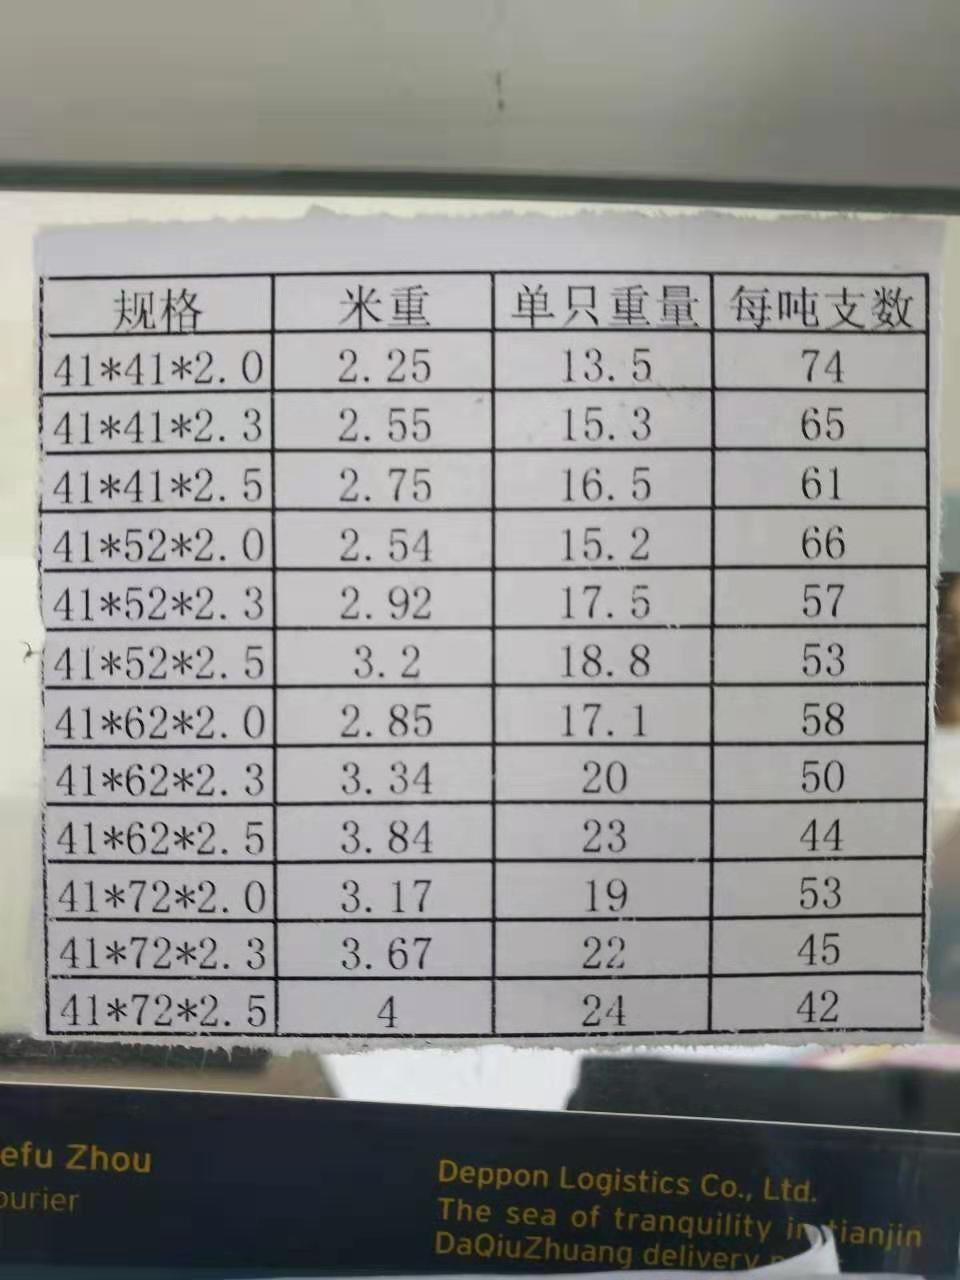 规格 米重 单只重量 每吨支数
41*41*2.0 2.25 13.5 74
41*41*2.3 2.55 15.3 65
41*41*2.5 2.75 16.5 61
41*52*2.0 2.54 15.2 66
41*52*2.3 2.92 17.5 57
41*52*2.5 3.2 18.8 53
41*62*2.0 2.85 17.1 58
41*62*2.3 3.34 20 50
41*62*2.5 3.84 23 44
41*72*2.0 3.17 19 53
41*72*2.3 3.67 22 45
41*72*2.5 4 24 42
efu Zhou
ourier
Deppon Logistics Co., Ltd.
The sea of tranquility in tianjin
DaQiuZhuang delivery